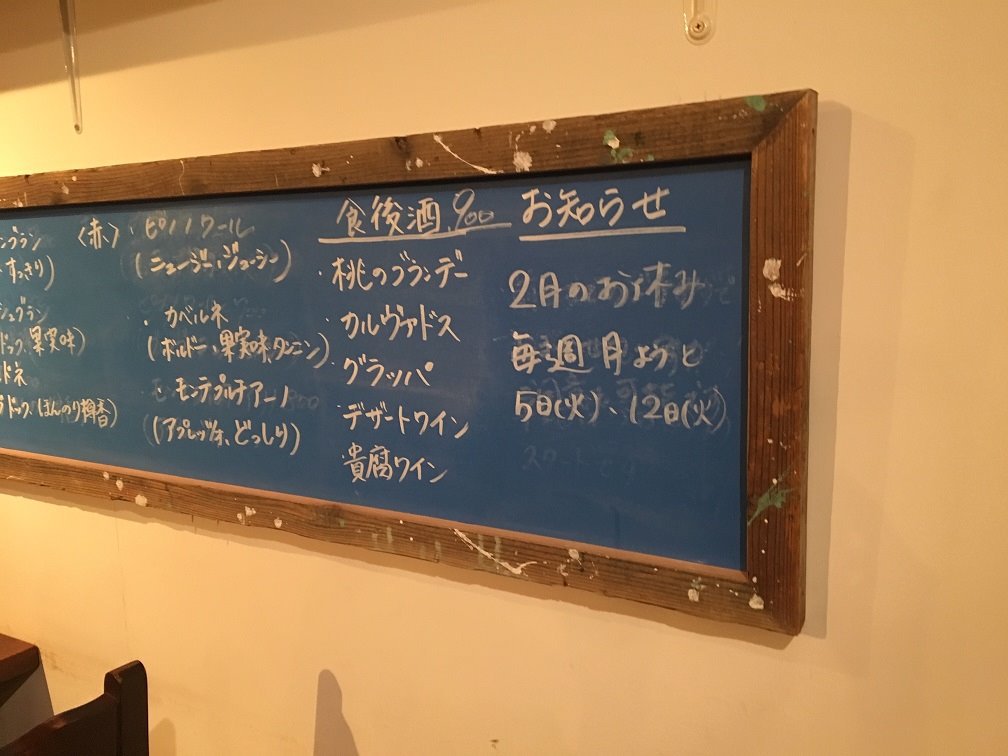 ンブラン
すっきり)
シュブラン
ドック、果実味)
ドネ
ラドック、ほんのり樽香)
〈赤〉・ピノノワール
(ニュージー、ジューシー)
・カベルネ
(ボルドー、果実味、タンニン)
・モンテプルチアート
(アブルッツォ、どっしり)
食後酒 900
・桃のブランデー
・カルヴァドス
・グラッパ
デザートワイン
貴腐ワイン
お知らせ
2月のお休み
毎週月ようと
5日(火)、12日(火)